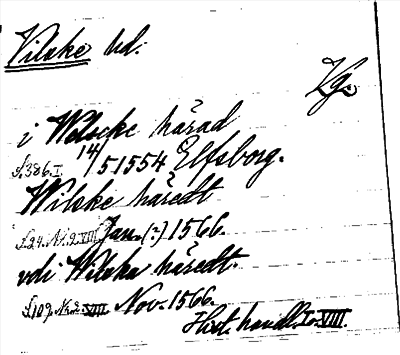 Vilske hd.
Vg.
i Wilscke härad
S.386.I. 14/5 1554 Elfsborg.
Wilske häredt
S.24.Nr.2.VIII. Jan.(?) 1566.
vdi Wilska häredt.
S.109.Nr.2.VIII Nov. 1566.
Hist. handl. I o. VIII.